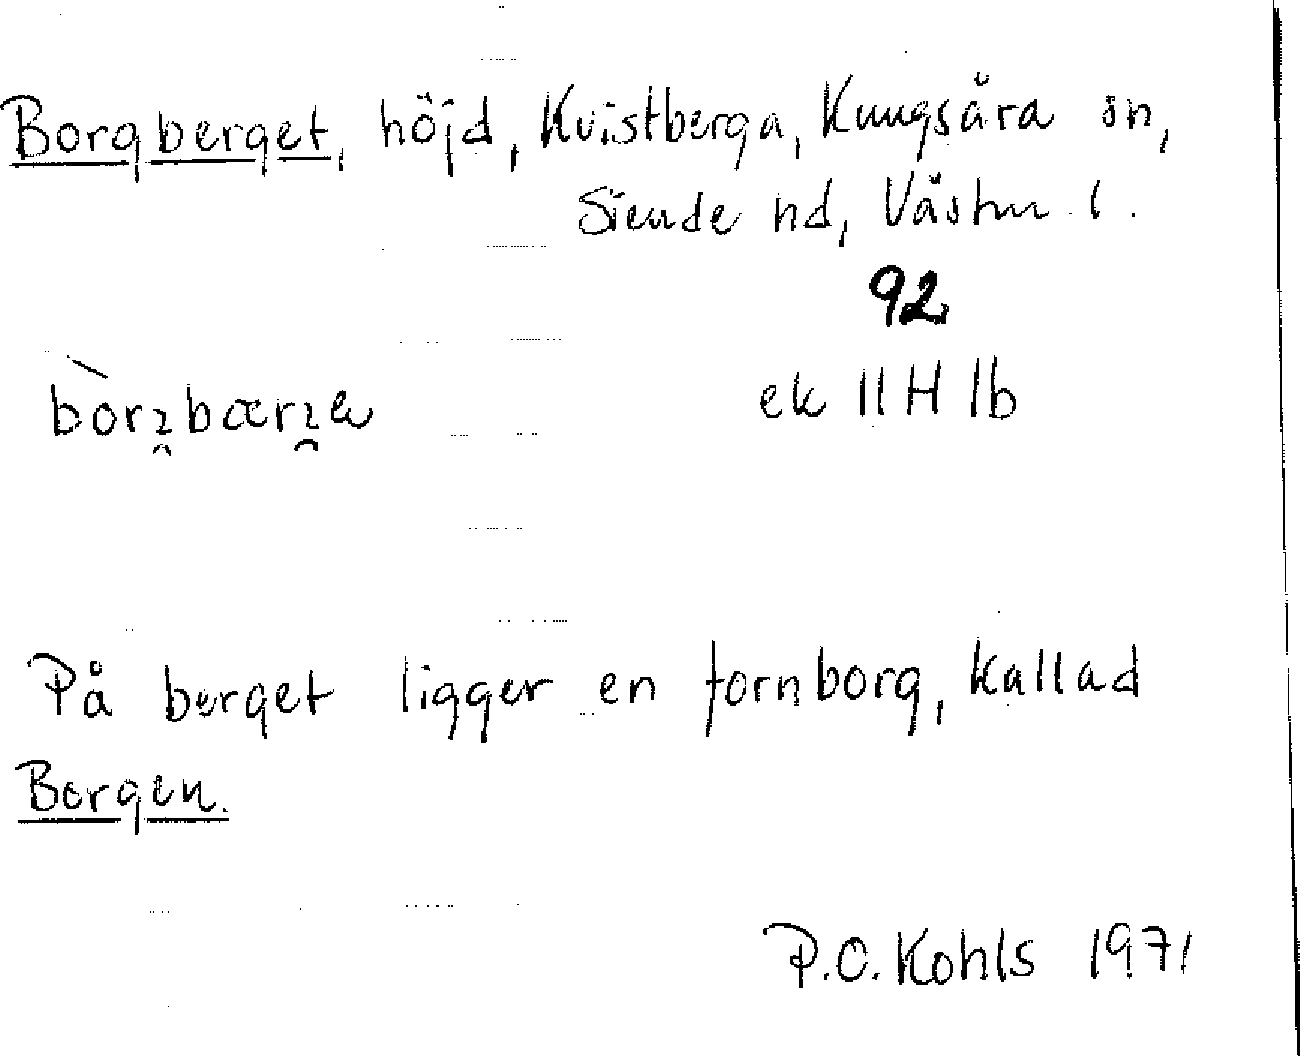 Borgberget, höjd, Kvistberga, Kungsåra sn,
Siende hd, Västm. l.
92
ek 11 H 1b
På berget ligger en fornborg, kallad
Borgen.
P.O. Kohls 1971